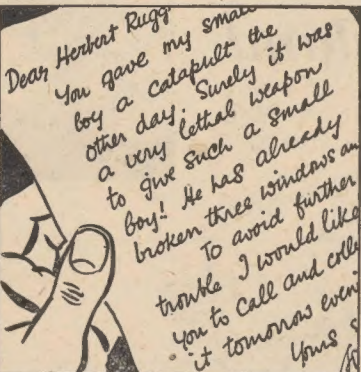 Dear Herbert Rugg
You gave my small
boy a catapult the
other day. Surely it was
a very lethal weapon
to give such a small
boy! He has already
broken three windows an
To avoid further
trouble I would like
you to call and colle
it tomorrow even
Yours